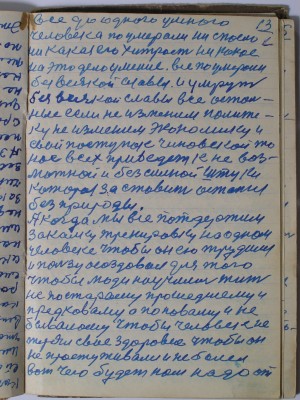 Все до одного умного 13
человека поумерали ни спосло
ни какая его хитрость ни какое
на это дело умение. все поумерали
без всякой славы. и умрут
без всякой славы все осталь-
ные если не изменем полите-
ку не изменим экономику и
свой поступок чиновской то
нас всех приведет к не воз-
можной и бессильной штуки
которая заставит остатся
без природы.
А когда мы все поддержим
закалку тренировку на одном
человеке чтобы он его трудился
и пользу создовал для того
чтобы люди научились жить
не постарому прошедшему и
предковому а поновому и не
бывалому чтобы человек не
терял свое здоровье чтобы он
не простуживался и не болел
вот чего будет нам надо от